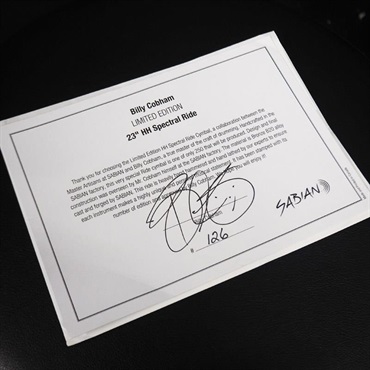 Billy Cobham
LIMITED EDITION
23" HH Spectral Ride
Thank you for choosing the Limited Edition HH Spectral Ride Cymbal, a collaboration between the
Master Artisans at SABIAN and Billy Cobham, a true master of the craft of drumming. Handcrafted in the
SABIAN factory, this very special Ride cymbal is one of only 250 that will be produced. Design and final
construction was overseen by Mr. Cobham himself at the SABIAN factory. The material is Bronze (B20 alloy
cast and forged by SABIAN). This ride is heavily hand hammered and hand lathed by our experts to ensure
each instrument makes a highly unique and personal musical statement. It has been stamped with its
number of edition and signed by Billy Cobham. We hope you will enjoy it!
# 126
SABIAN